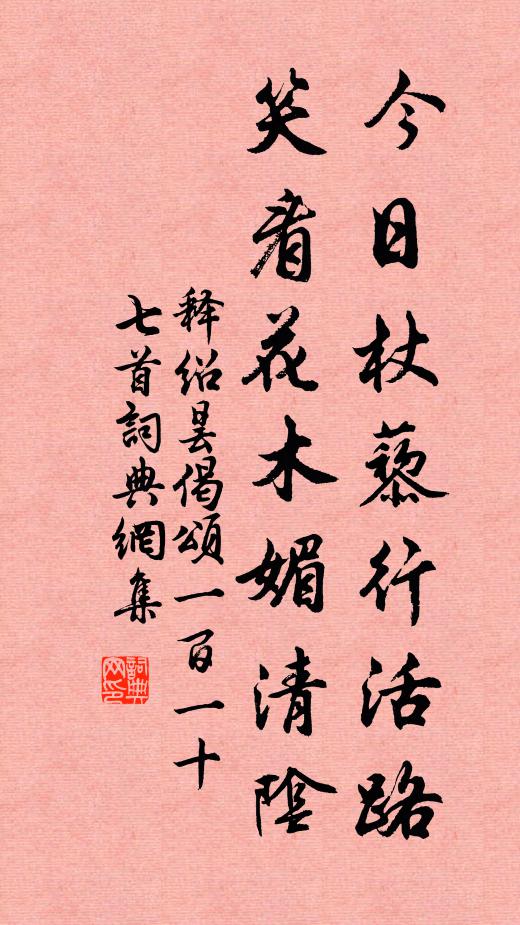 今日杖藜行活路
笑看花木媚清陰
释绍昙偈頌一百一十
七首詞典網集
詞典网印